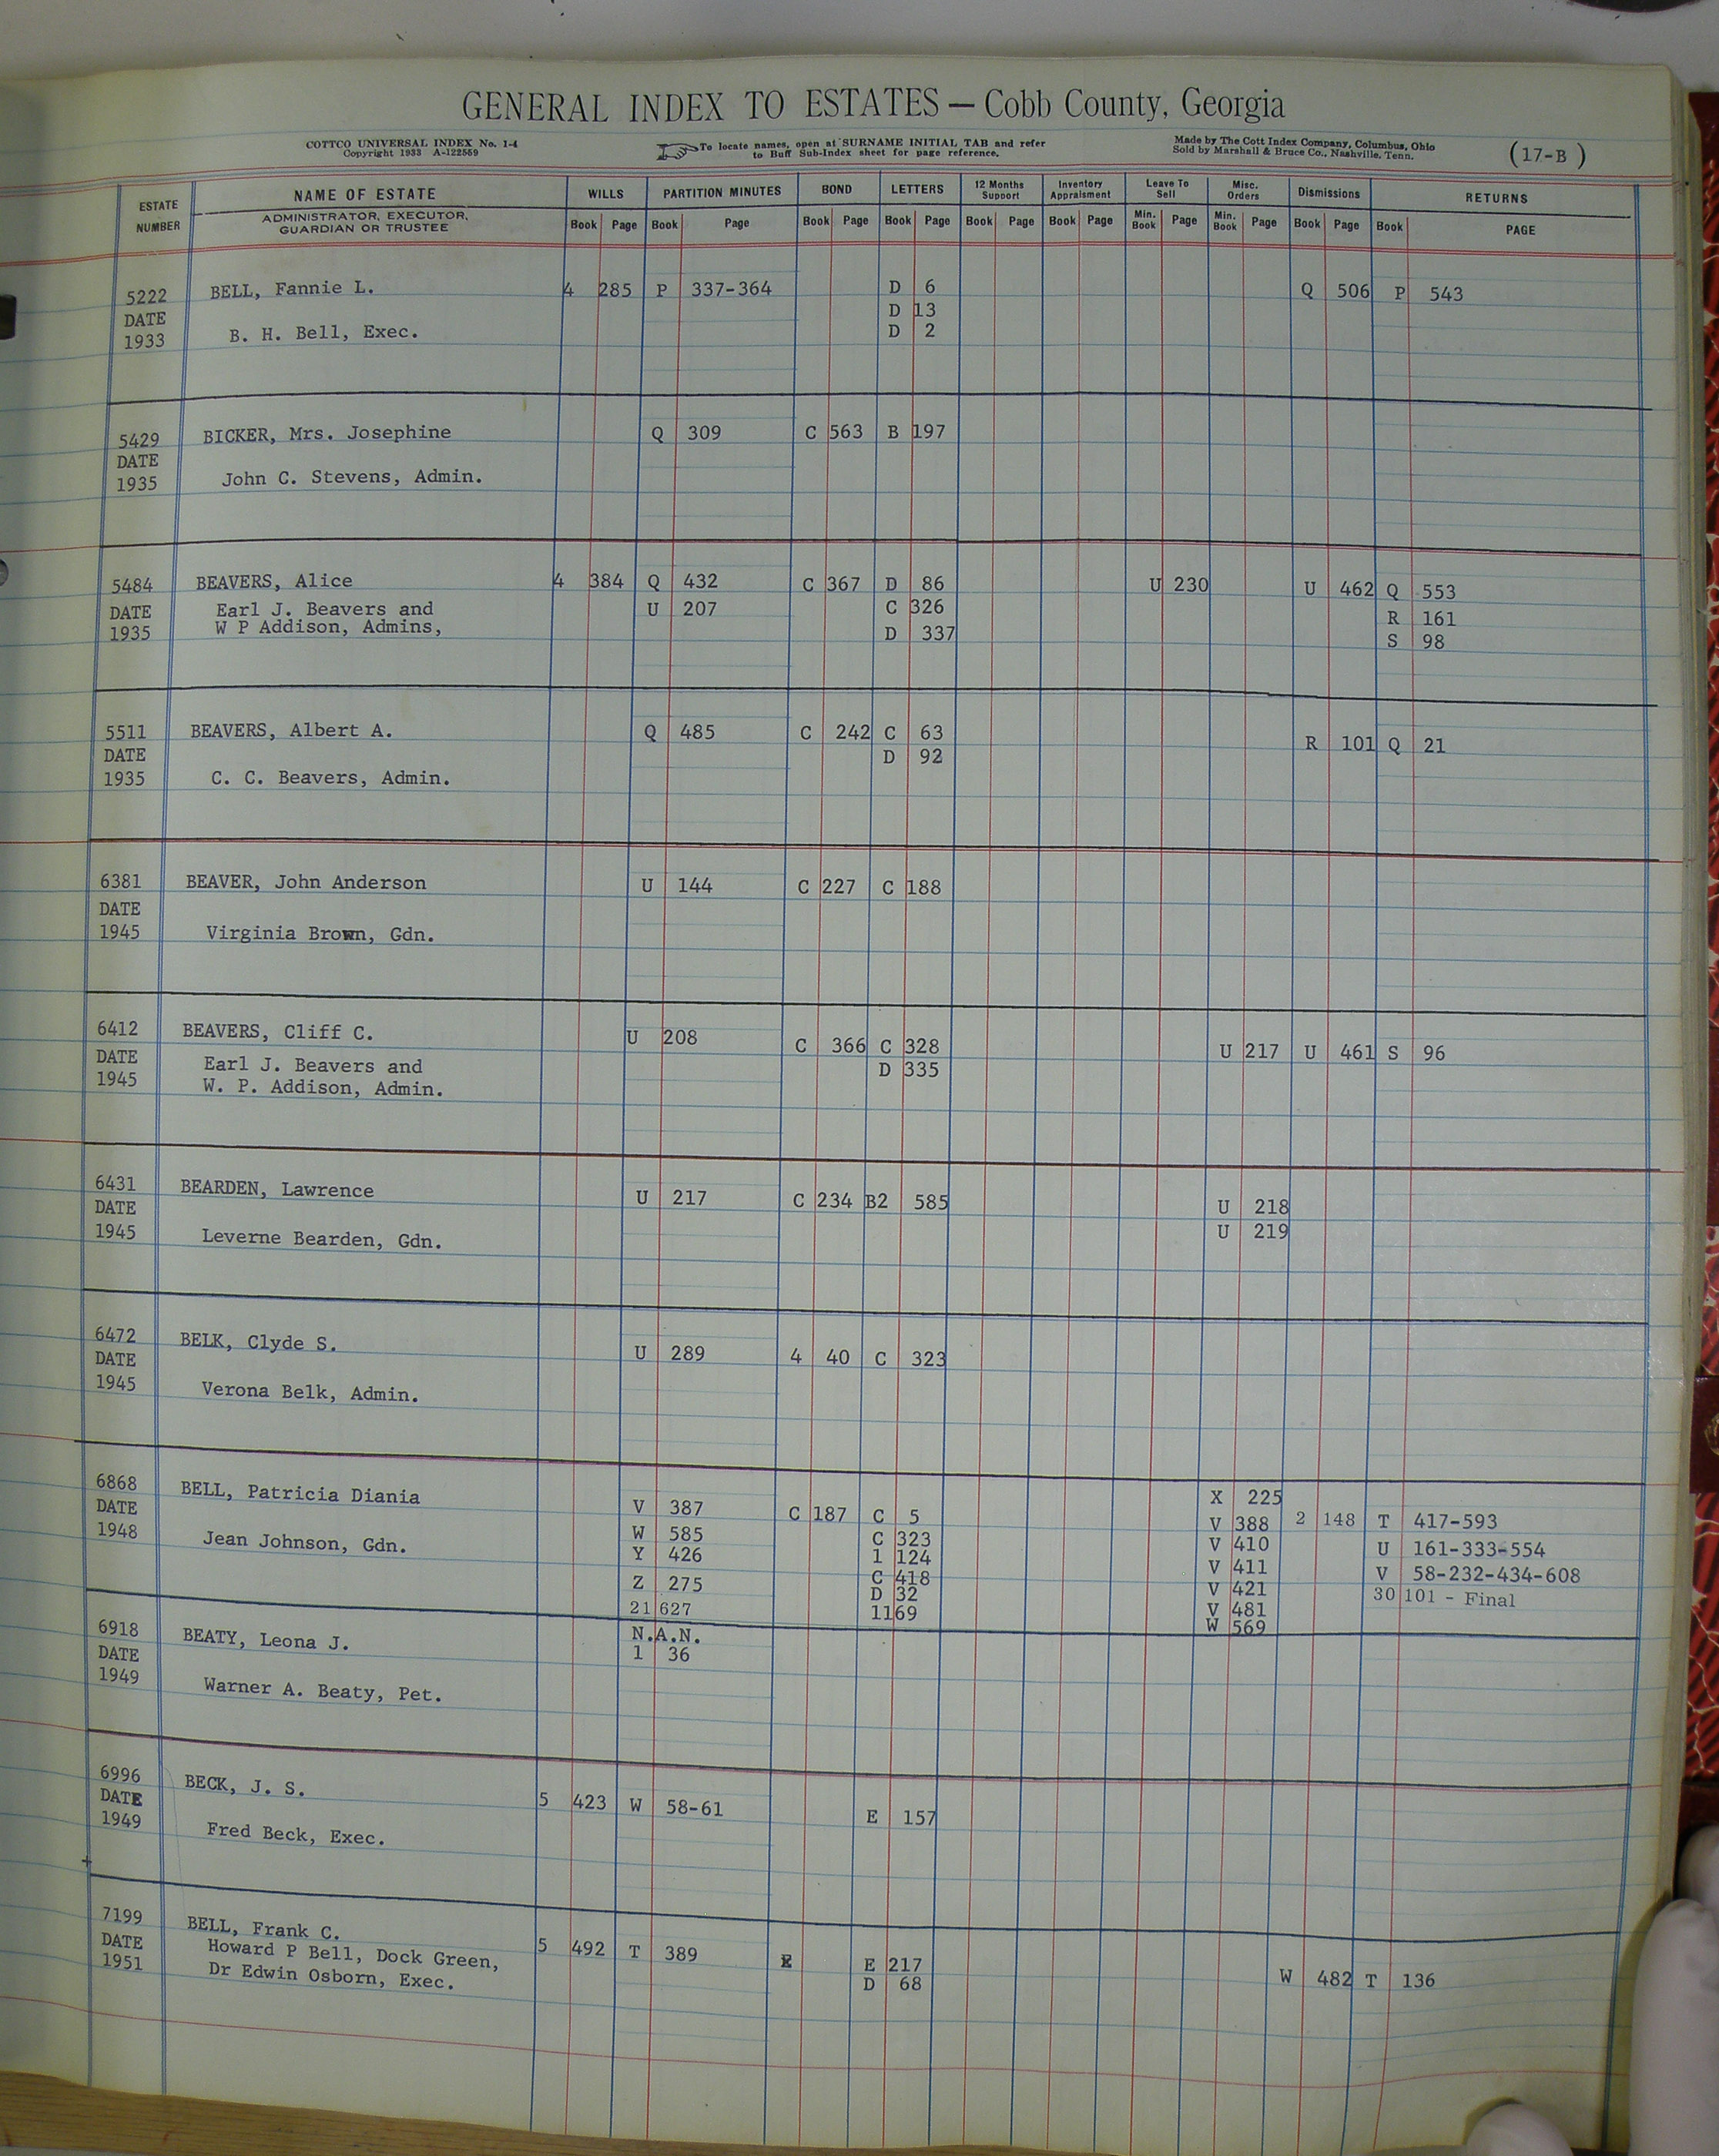 GENERAL INDEX TO ESTATES — Cobb County, Georgia
COTTCO UNIVERSAL INDEX No. 1-4
Copyright 1933 A-122559
To locate names, open at SURNAME INITIAL TAB and refer
to Buff Sub-Index sheet for page reference.
Made by The Cott Index Company, Columbus, Ohio
Sold by Marshall & Bruce Co., Nashville, Tenn.
(17-B)
ESTATE NUMBER
NAME OF ESTATE
ADMINISTRATOR, EXECUTOR,
GUARDIAN OR TRUSTEE
WILLS PARTITION MINUTES BOND LETTERS 12 Months Support Inventory Appraisment Leave To Sell Misc. Orders Dismissions RETURNS
Book Page Book Page Book Page Book Page Book Page Book Page Min. Book Page Min. Book Page Book Page Book PAGE
5222 BELL, Fannie L. 4 285 P 337-364 D 6 Q 506 P 543
DATE D 13
1933 B. H. Bell, Exec. D 2
5429 BICKER, Mrs. Josephine Q 309 C 563 B 197
DATE
1935 John C. Stevens, Admin.
5484 BEAVERS, Alice 4 384 Q 432 C 367 D 86 U 230 U 462 Q 553
DATE Earl J. Beavers and U 207 C 326 R 161
1935 W P Addison, Admins, D 337 S 98
5511 BEAVERS, Albert A. Q 485 C 242 C 63 R 101 Q 21
DATE D 92
1935 C. C. Beavers, Admin.
6381 BEAVER, John Anderson U 144 C 227 C 188
DATE
1945 Virginia Brown, Gdn.
6412 BEAVERS, Cliff C. U 208 C 366 C 328 U 217 U 461 S 96
DATE Earl J. Beavers and D 335
1945 W. P. Addison, Admin.
6431 BEARDEN, Lawrence U 217 C 234 B2 585 U 218
DATE U 219
1945 Leverne Bearden, Gdn.
6472 BELK, Clyde S. U 289 4 40 C 323
DATE
1945 Verona Belk, Admin.
6868 BELL, Patricia Diania V 387 C 187 C 5 X 225
DATE W 585 C 323 V 388 2 148 T 417-593
1948 Jean Johnson, Gdn. Y 426 1 124 V 410 U 161-333-554
Z 275 C 418 V 411 V 58-232-434-608
21 627 D 32 V 421 30 101 - Final
1169 V 481
W 569
6918 BEATY, Leona J. N.A.N.
DATE 1 36
1949 Warner A. Beaty, Pet.
6996 BECK, J. S. 5 423 W 58-61 E 157
DATE
1949 Fred Beck, Exec.
7199 BELL, Frank C. 5 492 T 389 E 217 W 482 T 136
DATE Howard P Bell, Dock Green, D 68
1951 Dr Edwin Osborn, Exec.